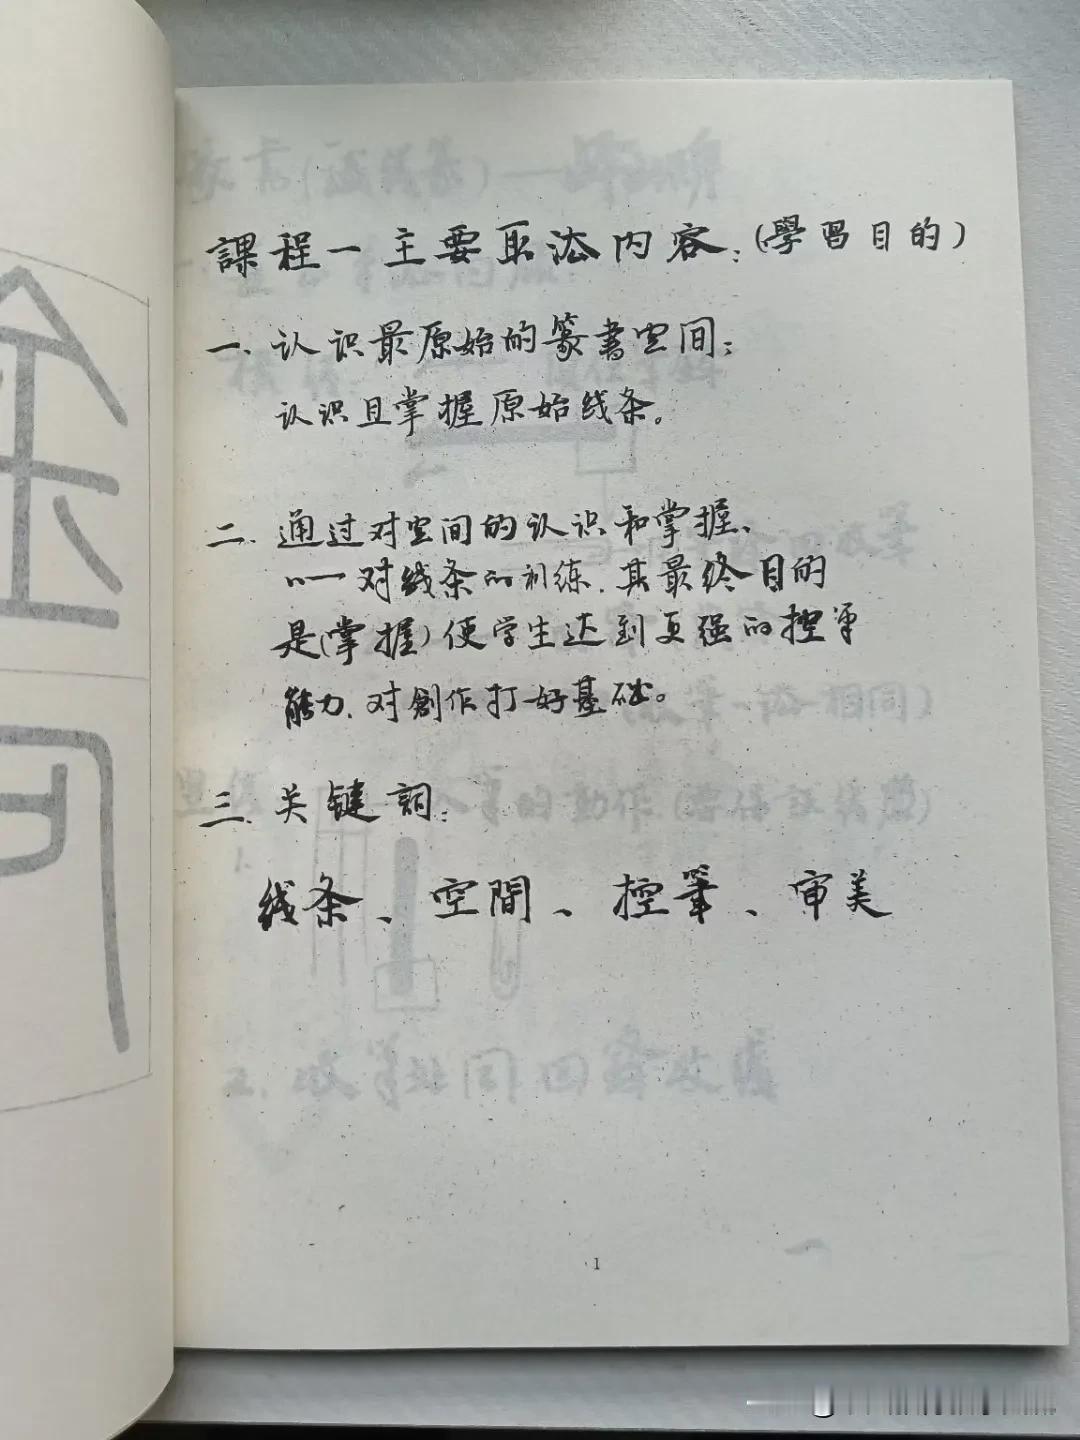 課程一主要取法内容:(學習目的)
一.认识最原始的篆書空间;
认识且掌握原始线条。
二.通过对空间的认识和掌握、
对线条的训练.其最终目的
是(掌握)使学生达到更强的控笔
能力.对創作打好基础。
三.关键詞:
线条、空間、控筆、审美
1